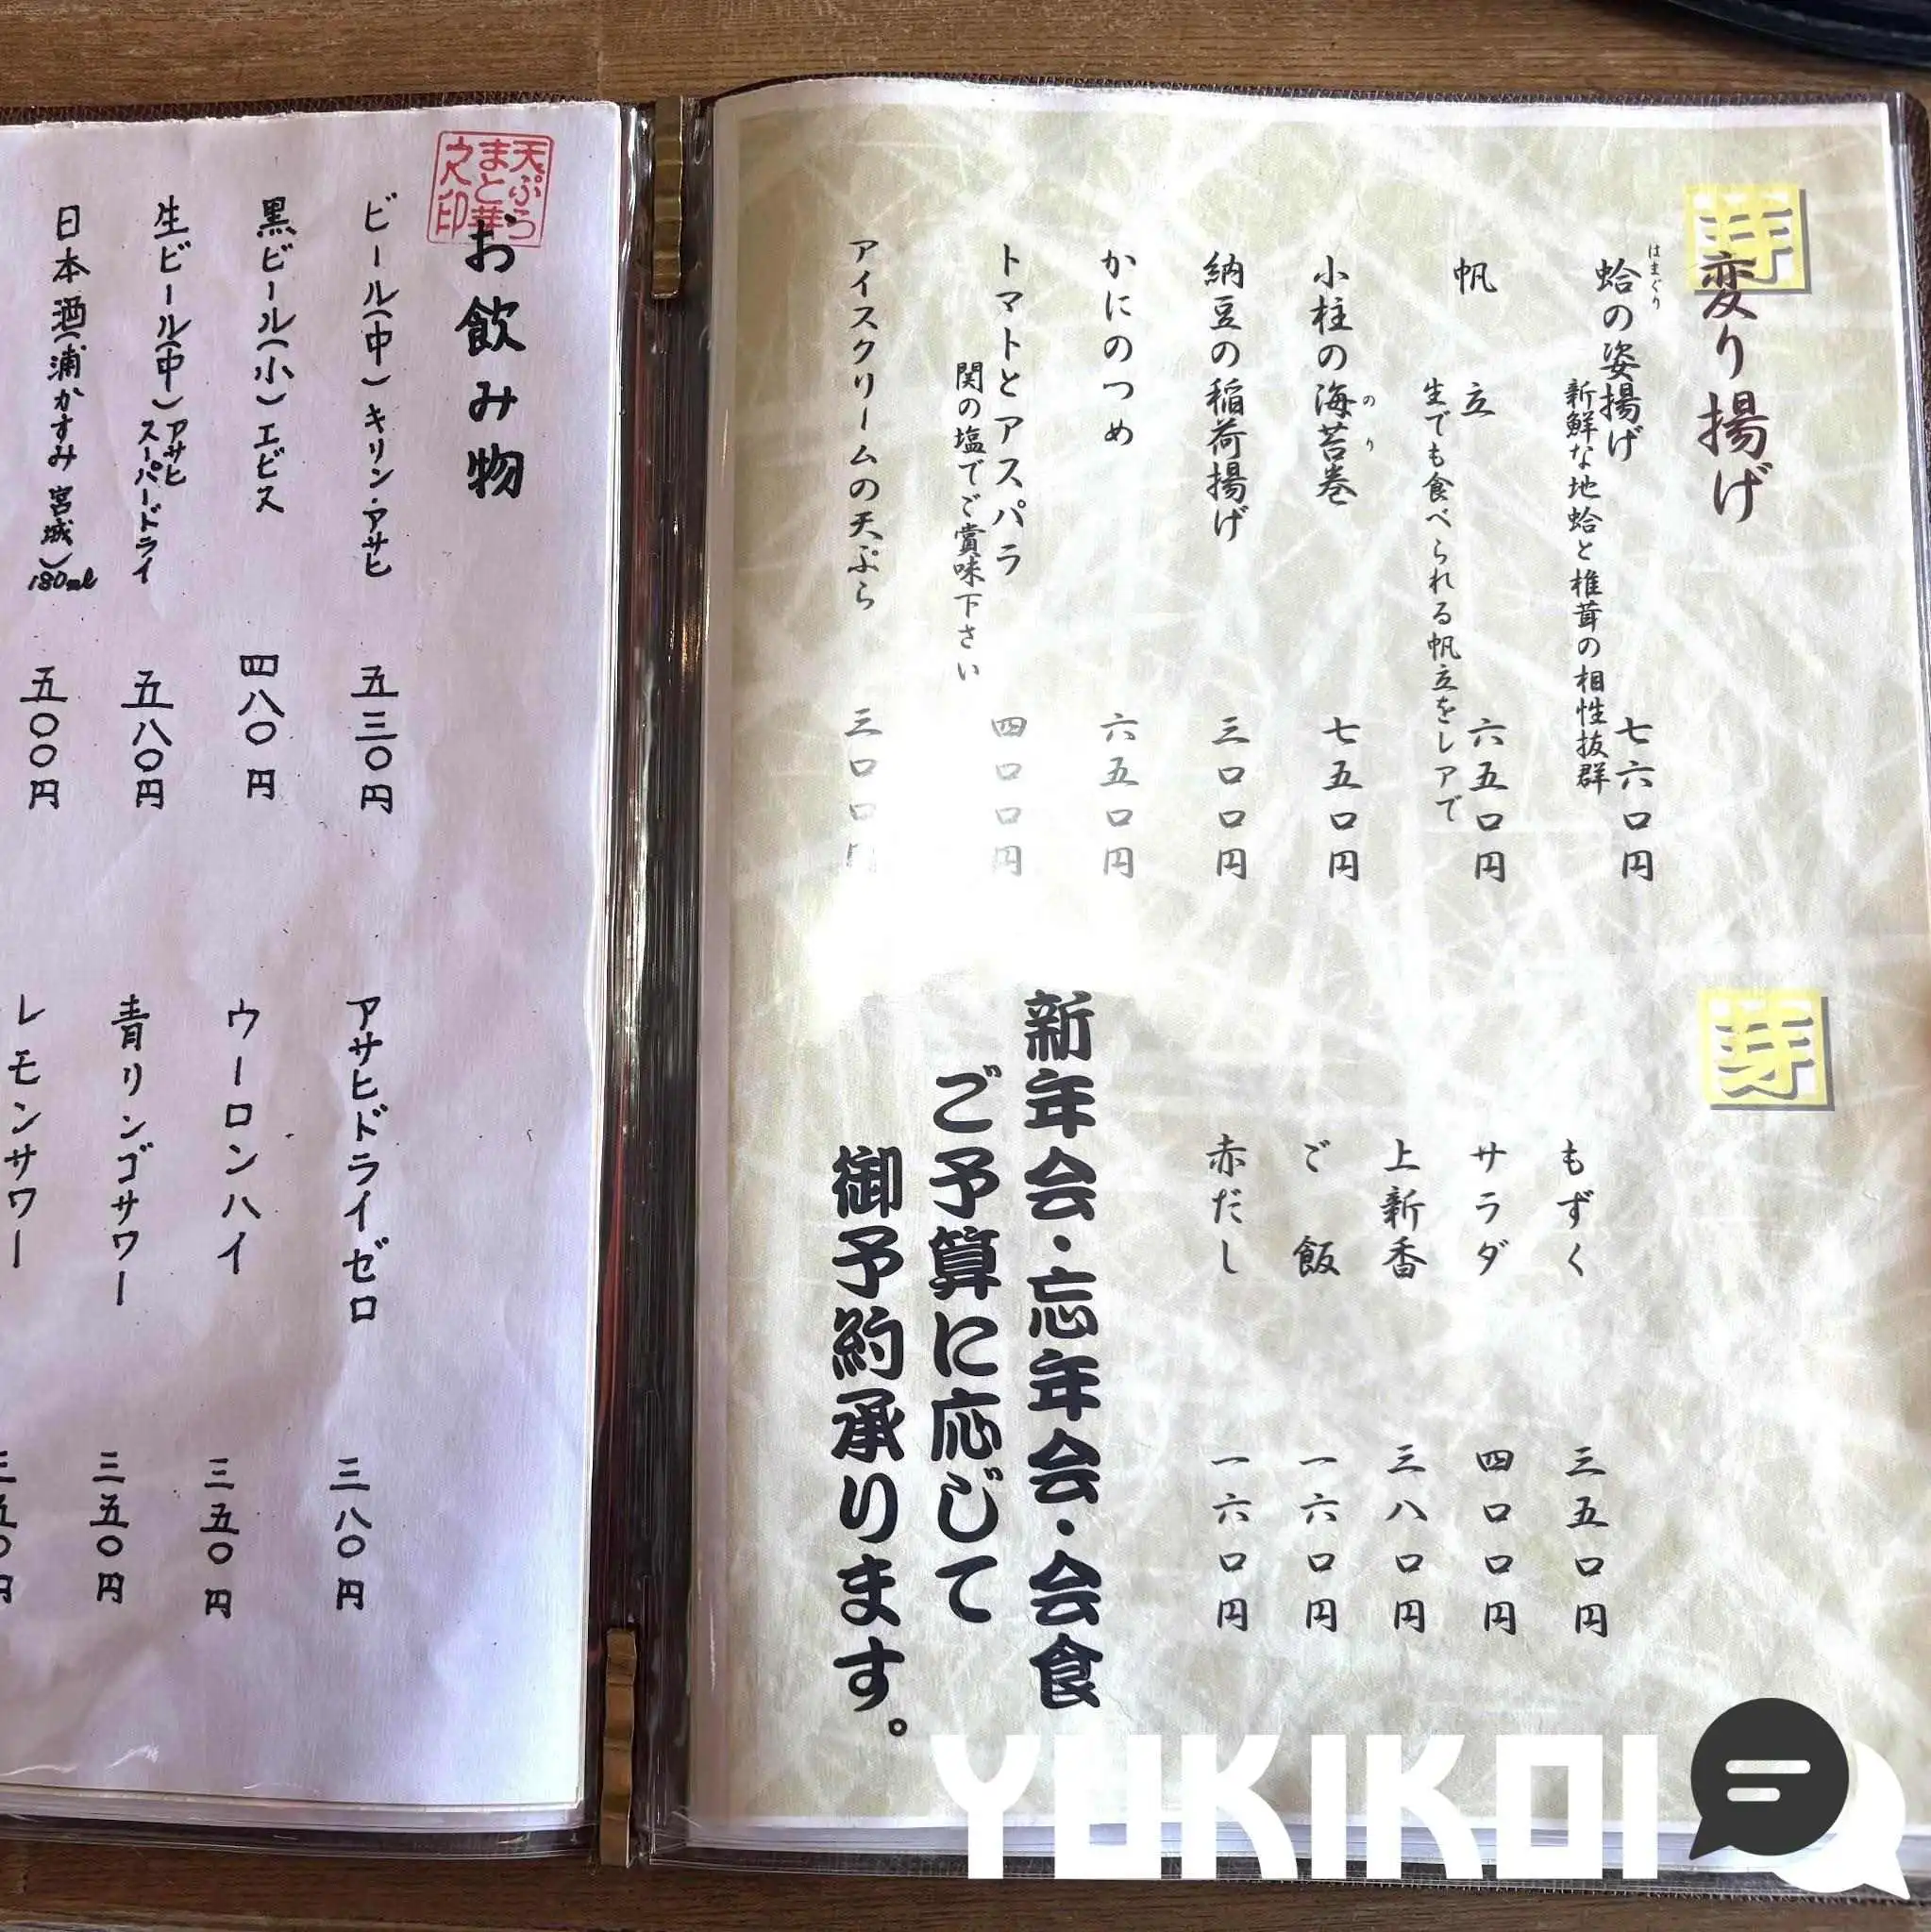 芽
変り揚げ
はまぐり
蛤の姿揚げ 七六〇円
新鮮な地蛤と椎茸の相性抜群
帆立 六五〇円
生でも食べられる帆立をレアで
のり
小柱の海苔巻 七五〇円
納豆の稲荷揚げ 三〇〇円
かにのつめ 六五〇円
トマトとアスパラ 四〇〇円
関の塩でご賞味下さい
アイスクリームの天ぷら 三〇〇円
芽
もずく 三五〇円
サラダ 四〇〇円
上新香 三八〇円
ご飯 一六〇円
赤だし 一六〇円
新年会・忘年会・会食
ご予算に応じて
御予約承ります。
天ぷら
まと華
之印
お飲み物
ビール(中)キリン・アサヒ 五三〇円
黒ビール(小)エビス 四八〇円
生ビール(中)アサヒ
スーパードライ 五八〇円
日本酒(浦かすみ 宮城)180ml 五〇〇円
アサヒドライゼロ 三八〇円
ウーロンハイ 三五〇円
青リンゴサワー 三五〇円
レモンサワー 三五〇円
YUKIKOI